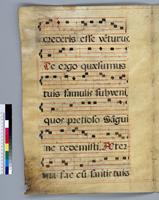 crederis esse véturus
Te ergo quæsumus
tuis famulis subveni,
quos pretioso sāgui
ne redemisti. Æter
na fac cū sanctis tuis